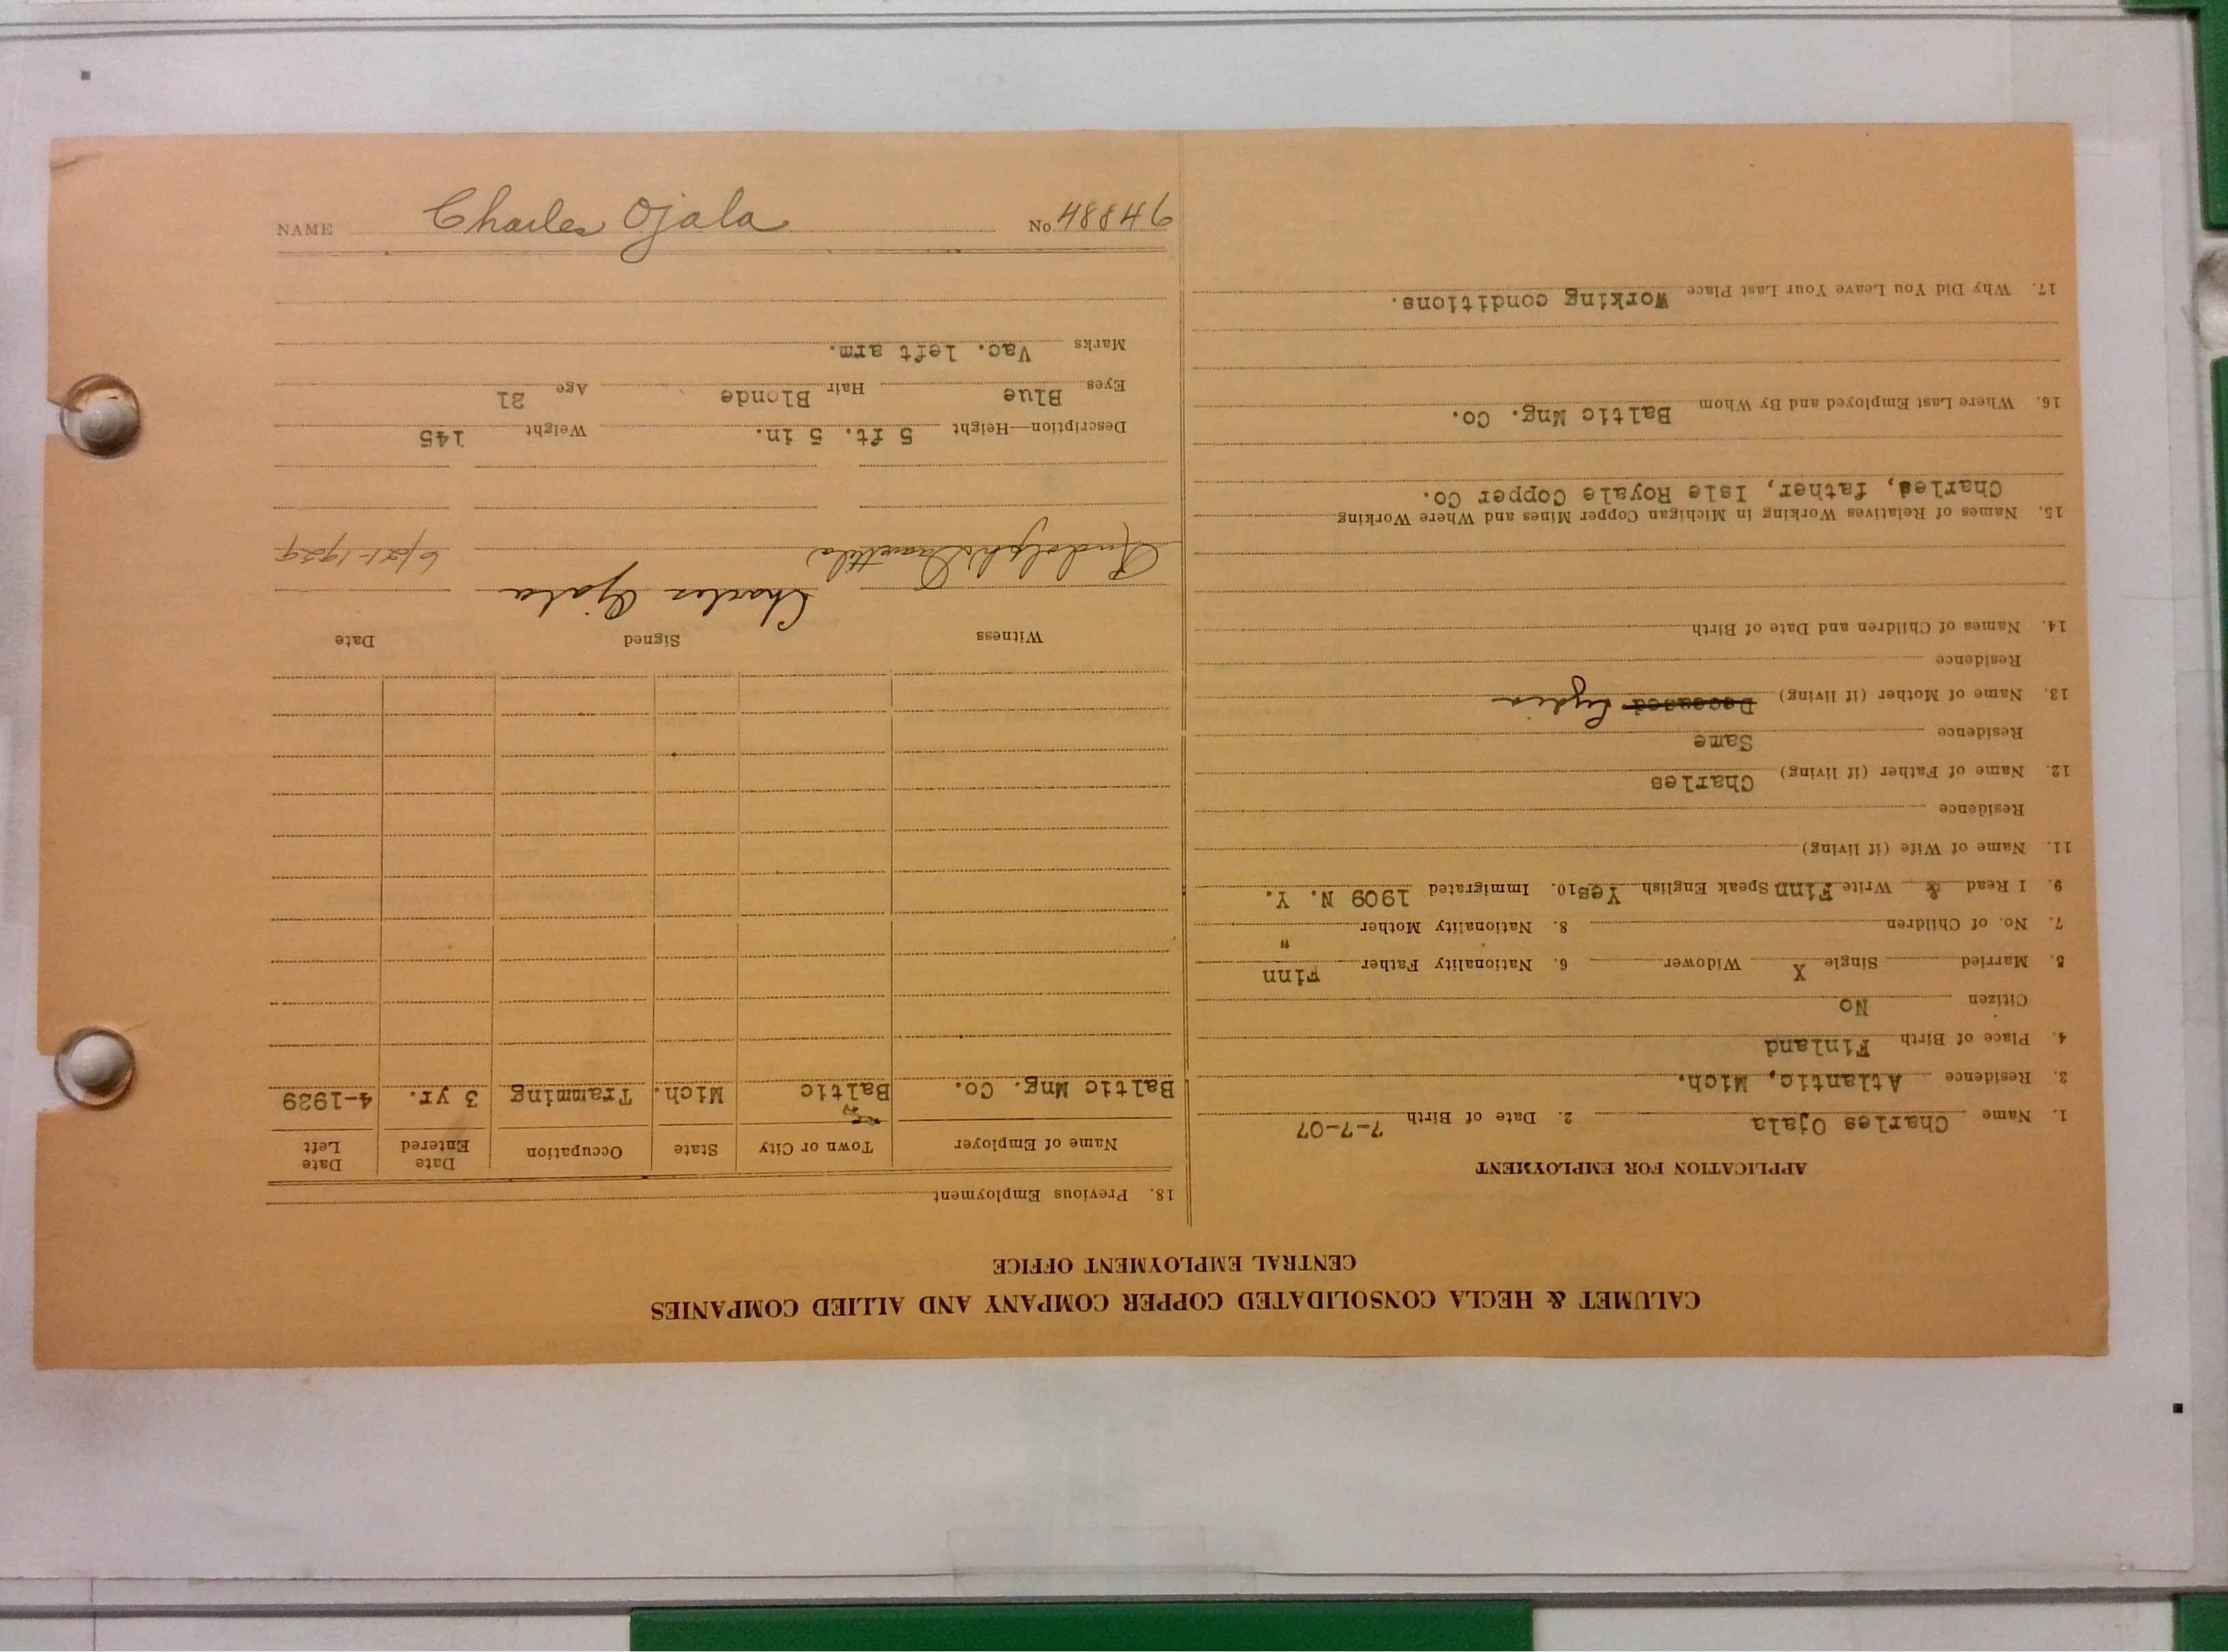 NAME Charles Ojala No. 48846
CALUMET & HECLA CONSOLIDATED COPPER COMPANY AND ALLIED COMPANIES
CENTRAL EMPLOYMENT OFFICE
APPLICATION FOR EMPLOYMENT
1. Name Charles Ojala 2. Date of Birth 7-7-07
3. Residence Atlantic, Mich.
4. Place of Birth Finland
Citizen No
5. Married Single X Widower 6. Nationality Father Finn
7. No. of Children 8. Nationality Mother "
9. I Read & Write Finn Speak English Yes 10. Immigrated 1909 N. Y.
11. Name of Wife (if living)
Residence
12. Name of Father (if living) Charles
Residence Same
13. Name of Mother (if living) Deceased Lydia
Residence
14. Names of Children and Date of Birth
15. Names of Relatives Working in Michigan Copper Mines and Where Working
Charles, father, Isle Royale Copper Co.
16. Where Last Employed and By Whom Baltic Mng. Co.
17. Why Did You Leave Your Last Place Working conditions.
18. Previous Employment
Name of Employer Town or City State Occupation Date Entered Date Left
Baltic Mng. Co. Baltic Mich. Tramming 3 yr. 4-1929
Witness Signed Date
Rudolph Charles Ojala 6/21-1929
Description—Height 5 ft. 5 in. Weight 145
Eyes Blue Hair Blonde Age 21
Marks Vac. left arm.